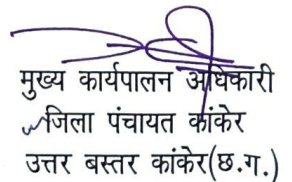 मुख्य कार्यपालन अधिकारी
जिला पंचायत कांकेर
उत्तर बस्तर कांकेर(छ.ग.)